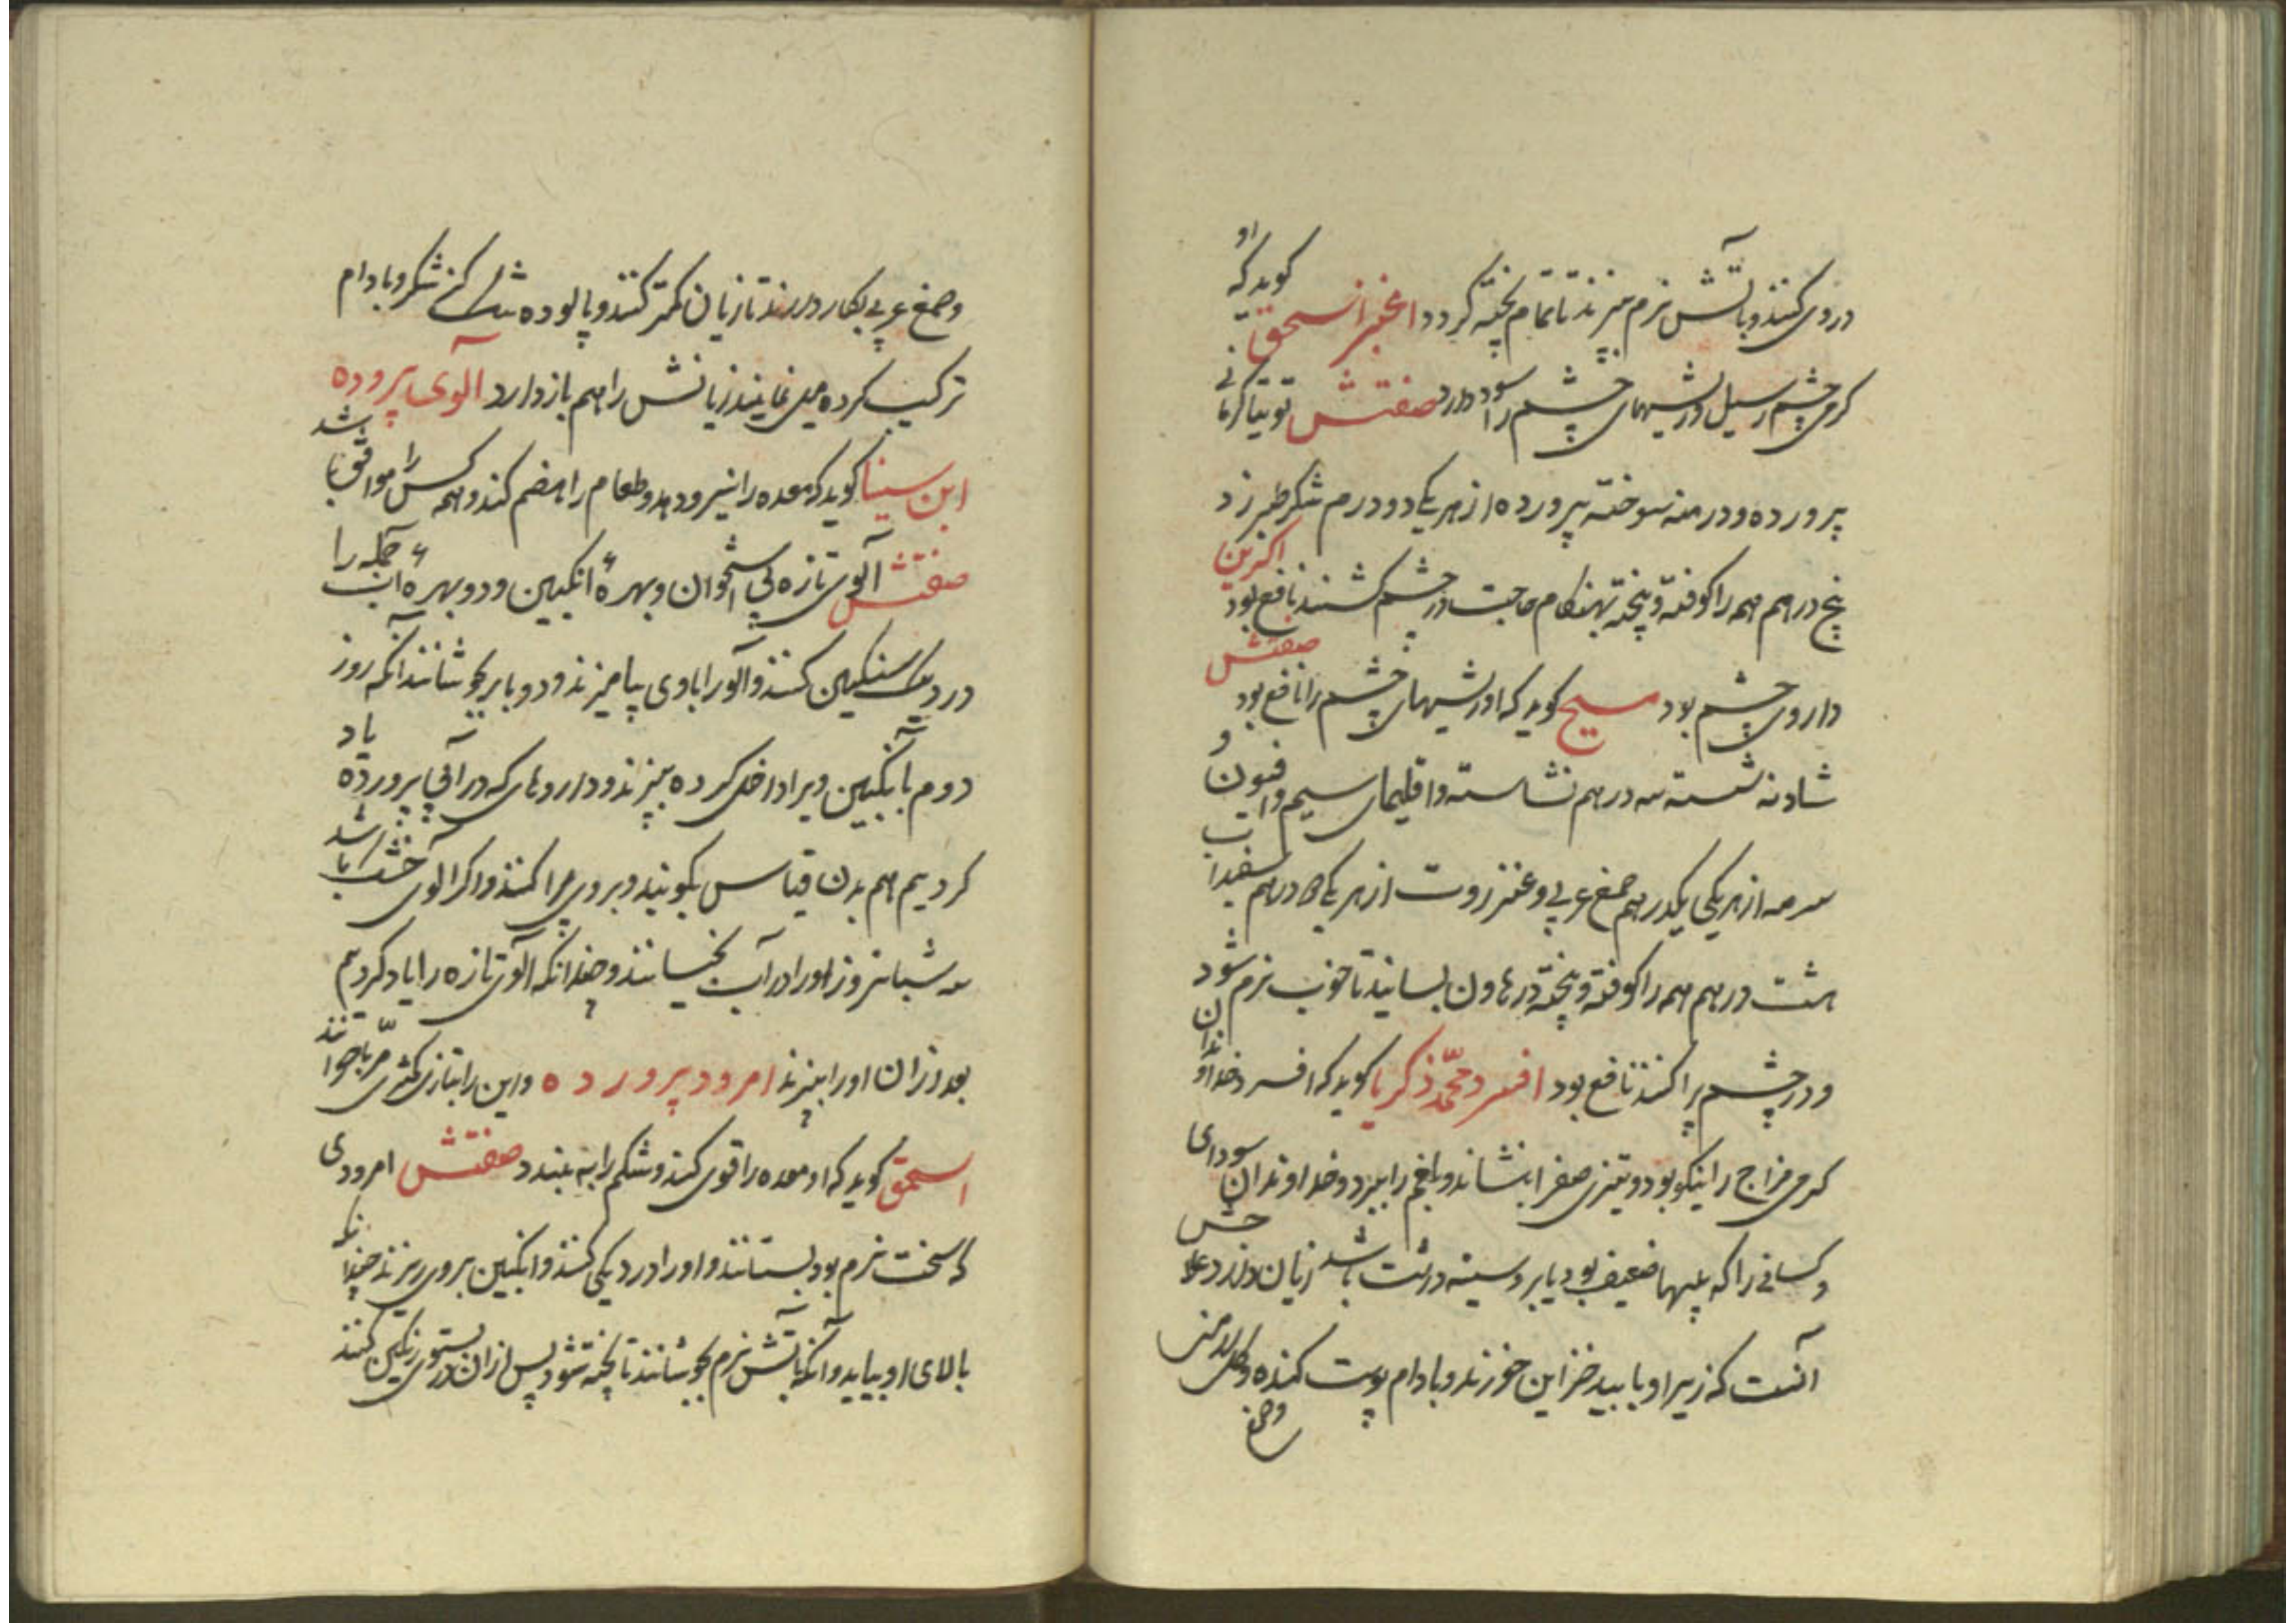 در وی کنند و بآتش نرم میپزند تا تمام پخته گردد اغبر اسحق گوید که او
گرمی چشم و سبل و ریشهای چشم را سود دارد صفتش توتیا کرمانی
پرورده و درمنه سوخته پرورده از هر یکی دو درم شکر طبرزد
پنج درهم همه را کوفته و پخته بهنکام حاجت در چشم کشند نافع بود اکرین
داروی چشم بود مسیح گوید که او ریشهای چشم را نافع بود صفتش
شادنه شسته سه درهم نشاسته و اقلیمای سیم و افیون و
سرمه از هر یکی یکدرهم صمغ عربی و عنزروت از هر یکی درهم سفیداب
هشت درهم همه را کوفته و پخته در هاون بسایند تا خوب نرم شود
و در چشم پراکنند نافع بود افسرد محمد زکریا گوید که افسرد خداوندان
گرمی مزاج را نیکو بود و تیزی صفرا بنشاند و بلغم را ببرد و خداوندان سودای
و کسانی را که پیهاضعیف بود یا بر و سینه درشت باشد زیان دارد علاجش
آنست که زیر او با سپید خزاین خورند و بادام پوست کنده و گل ارمنی
وصمغ
وصمغ عربی بکار دارند تا زیان کمتر کند و پالوده شکر و بادام
ترکیب کرده می نمایند زیانش را هم باز دارد آلوی پرورده
ابن سینا گوید که معده را نیرو دهد و طعام را هضم کند و همه کس را موافق باشد
صفتش آلوی تازه بی استخوان و بهرهٔ انگبین و دو بهرهٔ آب جمله را
در دیک سنکین کنند و آلو را با وی بیامیزند و دو بار بجوشانند آنکه روز
دوم با نکبین ویرا داخل کرده میپزند و داروهای که در آبی پرورده یاد
کردیم هم بدن قیاس بکوبند و بروی پراکنند و اگر آلوی خشک باشد
سه شبانروز اورا در آب بخیسانند و چندانکه آلوی تازه را یاد کردیم
بعد ازان اورا بپزند امرود پرورده و این را بتازی کمثری مربا خوانند
اسحق گوید که او معده را قوی کند و شکم را به بندد صفتش امرودی
که سخت نرم بود بستانند و اورا در دیکی کنند و انکبین بروی ریزند چندانکه
بالای او بیاید و آنکه بآتش نرم بجوشانند تا پخته شود پس ازان در بستوی رنکین کنند